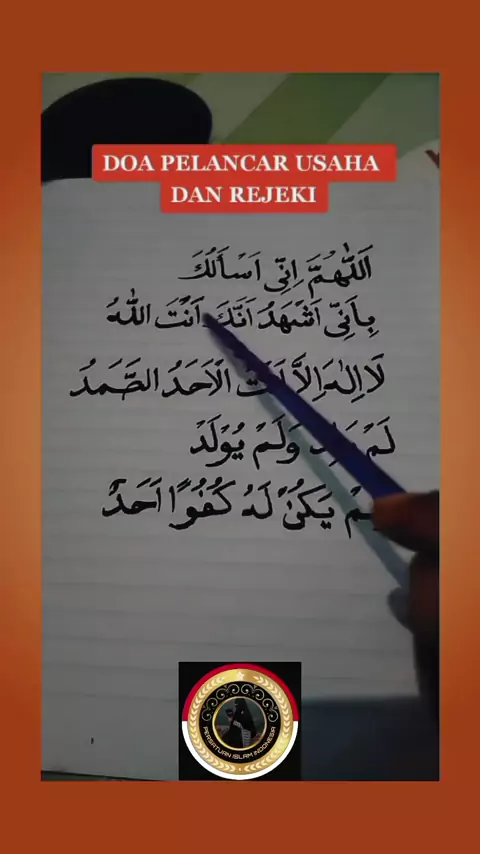 DOA PELANCAR USAHA
DAN REJEKI
اَللّٰهُمَّ اِنِّى اَسْأَلُكَ
بِاَنِّى اَشْهَدُ اَنَّكَ اَنْتَ اللهُ
لَا اِلٰهَ اِلَّا اَنْتَ الْاَحَدُ الصَّمَدُ
لَمْ وَلَمْ يُوْلَدْ
يَكُنْ لَهُ كُفُوًا اَحَدٌ
PERSATUAN ISLAM INDONESIA